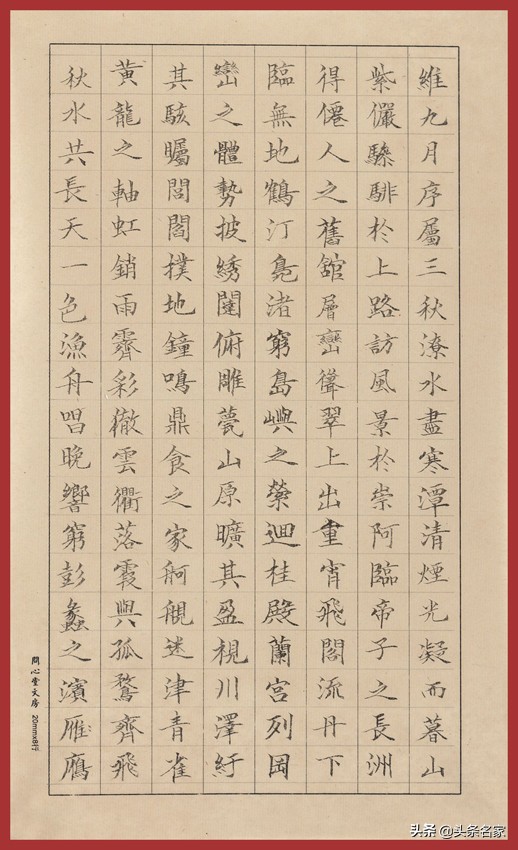 維九月序屬三秋潦水盡寒潭清煙光凝而暮山
紫儼驂騑於上路訪風景於崇阿臨帝子之長洲
得僊人之舊舘層巒聳翠上出重宵飛閣流丹下
臨無地鶴汀鳧渚窮島嶼之縈迴桂殿蘭宮列岡
巒之體勢披綉闥俯雕甍山原曠其盈視川澤紆
其駭矚閭閻撲地鐘鳴鼎食之家舸艦迷津青雀
黃龍之軸虹銷雨霽彩徹雲衢落霞與孤鶩齊飛
秋水共長天一色漁舟唱晚響窮彭蠡之濱雁鴈
問心堂文房 20mmx8行
头条 @头条名家